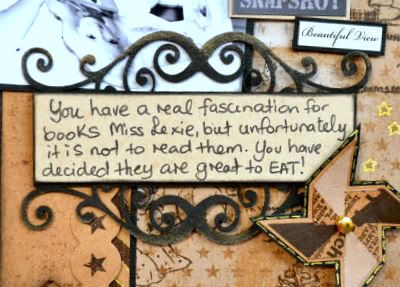 SNAPSHOT
Beautiful View
You have a real fascination for
books Miss Lexie, but unfortunately
it is not to read them. You have
decided they are great to EAT!